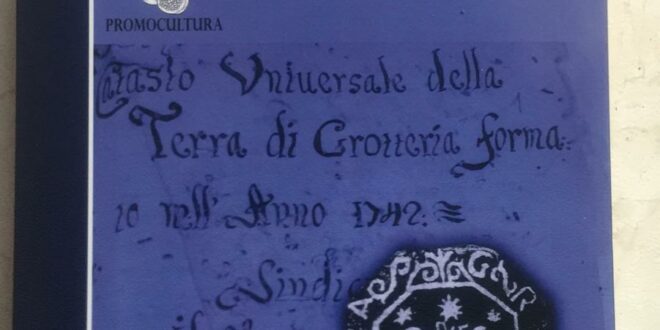 PROMOCULTURA
Catasto Vniuersale della
Terra di Grotteria forma=
to nell' Anno 1742:
Sindic